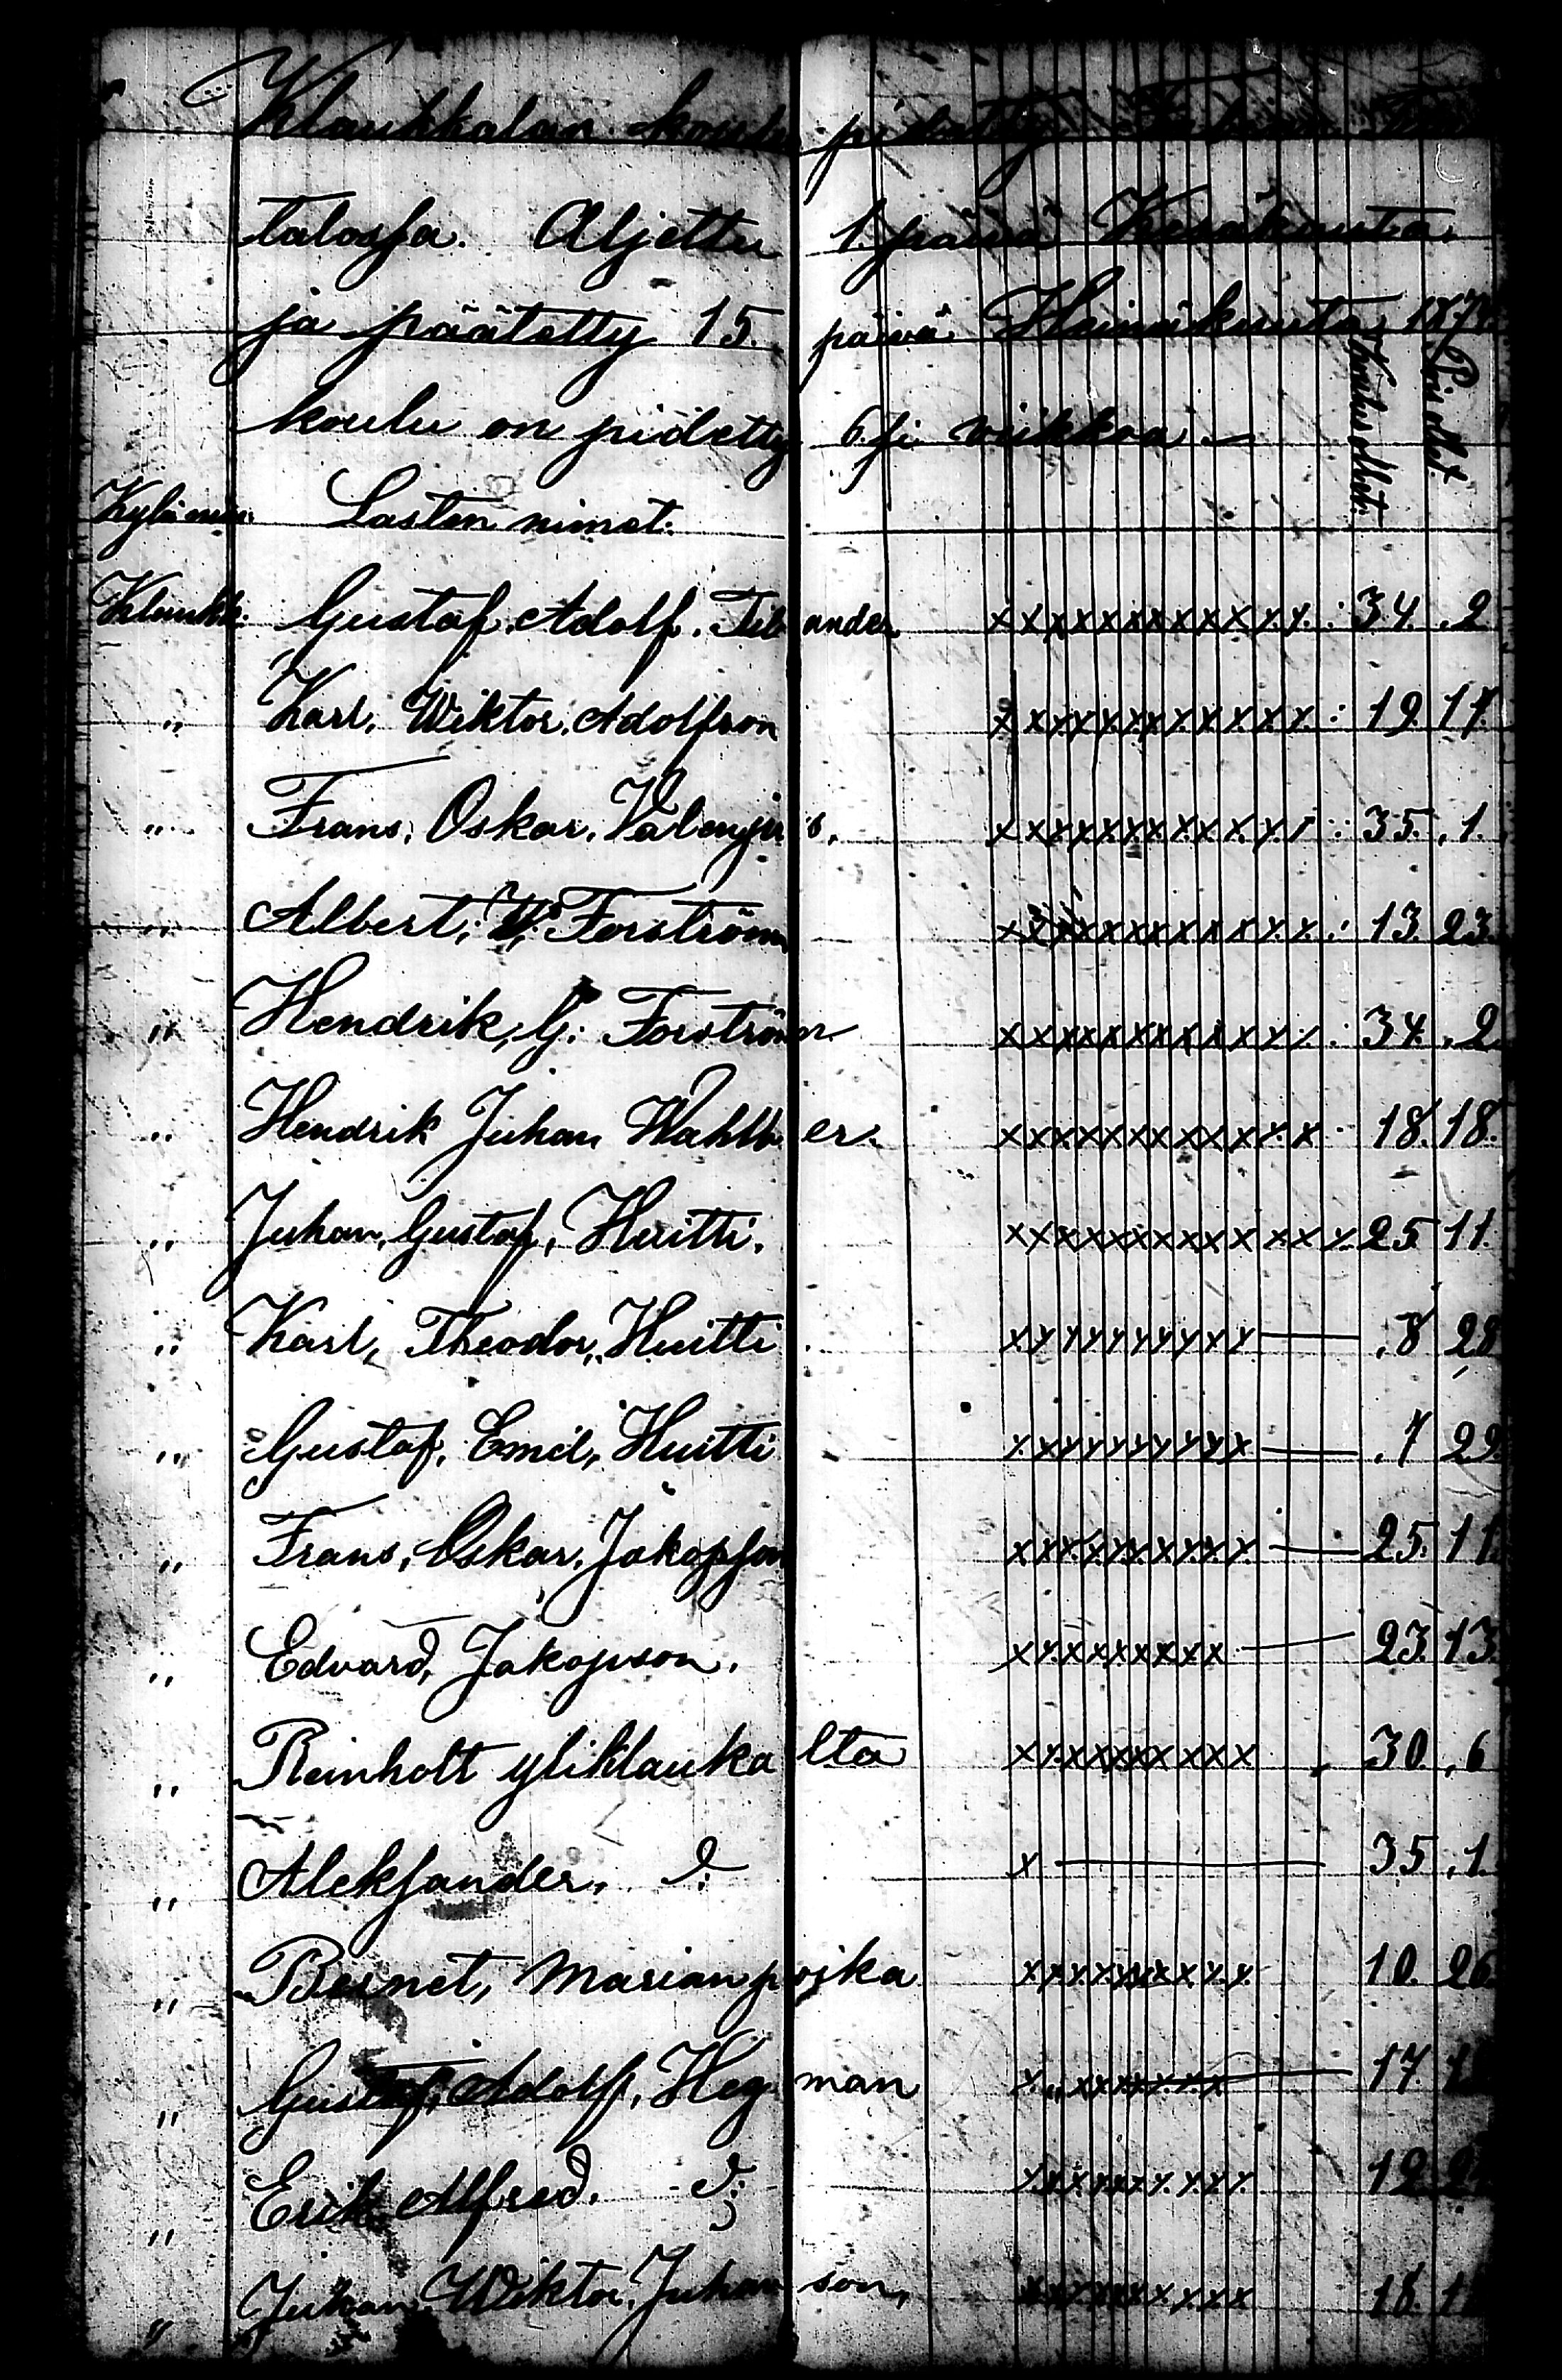 Klaukkalan koulu pidetty
talossa. Aljettu 1. päivä Kesäkuuta
ja päätetty 15. päivä Heinäkuuta 187
koulu on pidetty 6.si viikkoa —
Koulus ollet. Pois ollet.
Kylä Lasten nimet.
Klaukk. Gustaf. Adolf. ander x x x x x x x x x x x x x : 34. .2
" Karl, Wiktor. Adolfson x x x x x x x x x x x x x : 19 17.
" Frans, Oskar. x x x x x x x x x x x x x : 35. .1.
" Albert, W. Forström x x x x x x x x x x x x x : 13. 23.
" Hendrik, G: Forström x x x x x x x x x x x x x : 34. .2.
" Hendrik Juhan Wahlb er. x x x x x x x x x x x x x 18. 18.
" Juhan, Gustaf, Huitti. x x x x x x x x x x x x x x 25 11.
" Karl, Theodor, Huitti x x x x x x x x x x x — .8 28
" Gustaf, Emil, Huitti x x x x x x x x x x x — .7 29
" Frans, Oskar. Jakopson x x x x x x x x x x x — 25. 11.
" Edvard, Jakopson. x x x x x x x x x x — 23. 13.
" Reinholt yliklaukalta x x x x x x x x x x x 30. .6
" Aleksander. d: x — 35 .1.
" Bernet, Marian poika x x x x x x x x x x x 10. 26.
" Gustaf, Adolf, Hegman 17.
" Erik Alfred. d: x x x x x x x x x x x 12
" Juhan Wiktor. Juhanson, x x x x x x x x x x x 18.